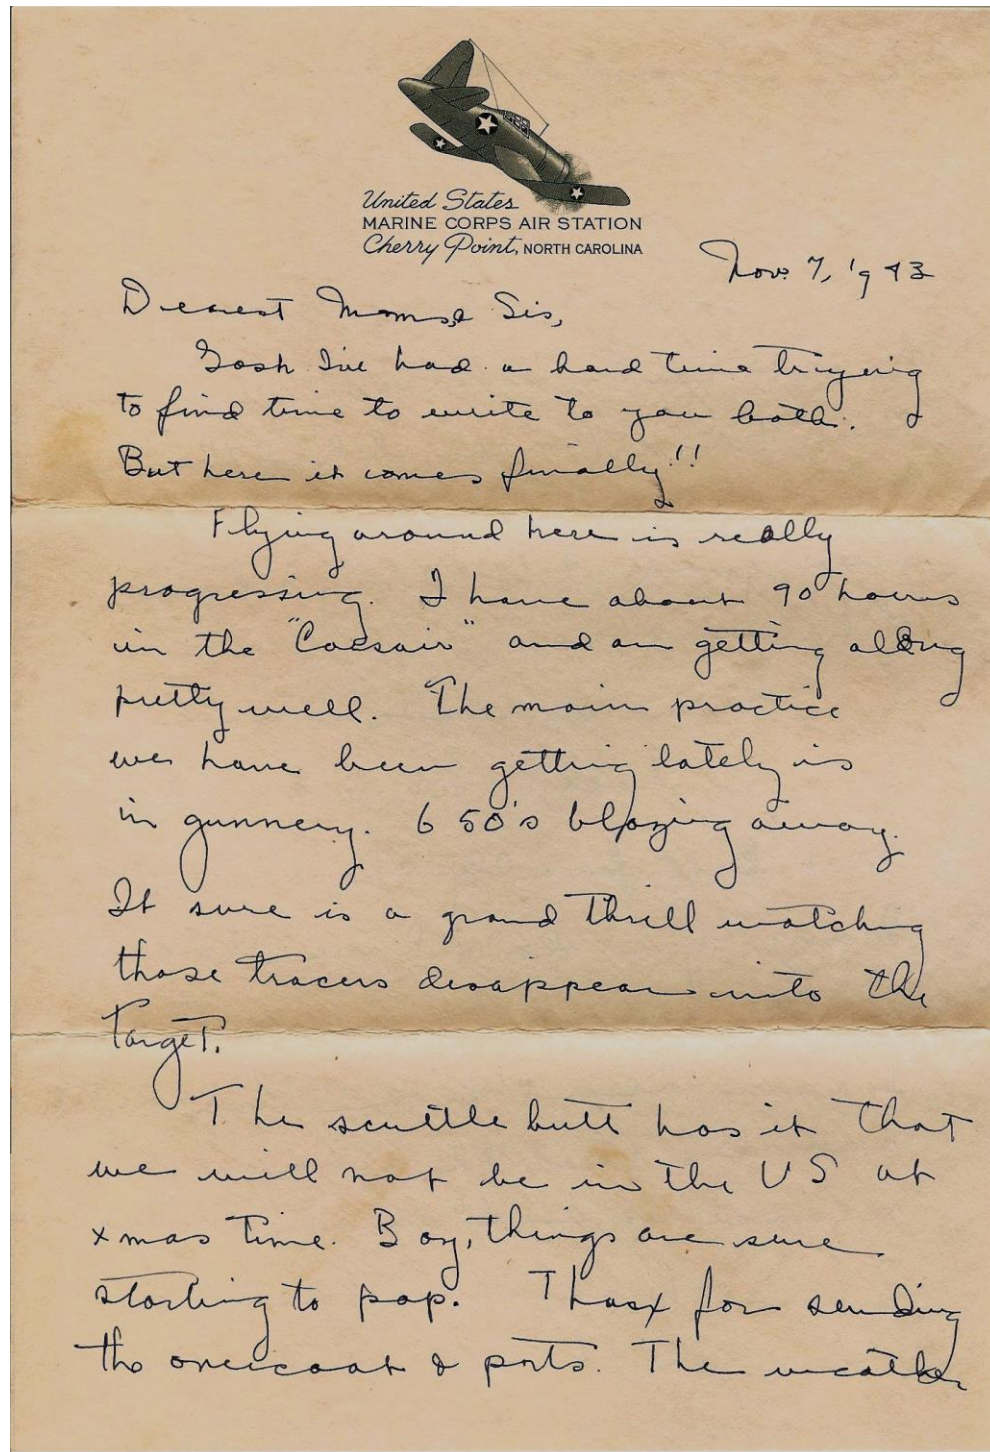 United States
MARINE CORPS AIR STATION
Cherry Point, NORTH CAROLINA
Nov. 7, 1943
Dearest Moms & Sis,
Gosh I've had a hard time trying
to find time to write to you both.
But here it comes finally!!
Flying around here is really
progressing. I have about 90 hours
in the "Corsair" and am getting along
pretty well. The main practice
we have been getting lately is
in gunnery. 6 50's blazing away.
It sure is a grand thrill watching
those tracers disappear into the
target.
The scuttle butt has it that
we will not be in the US at
xmas time. Boy, things are sure
starting to pop. Thanx for sending
the overcoat & The weather